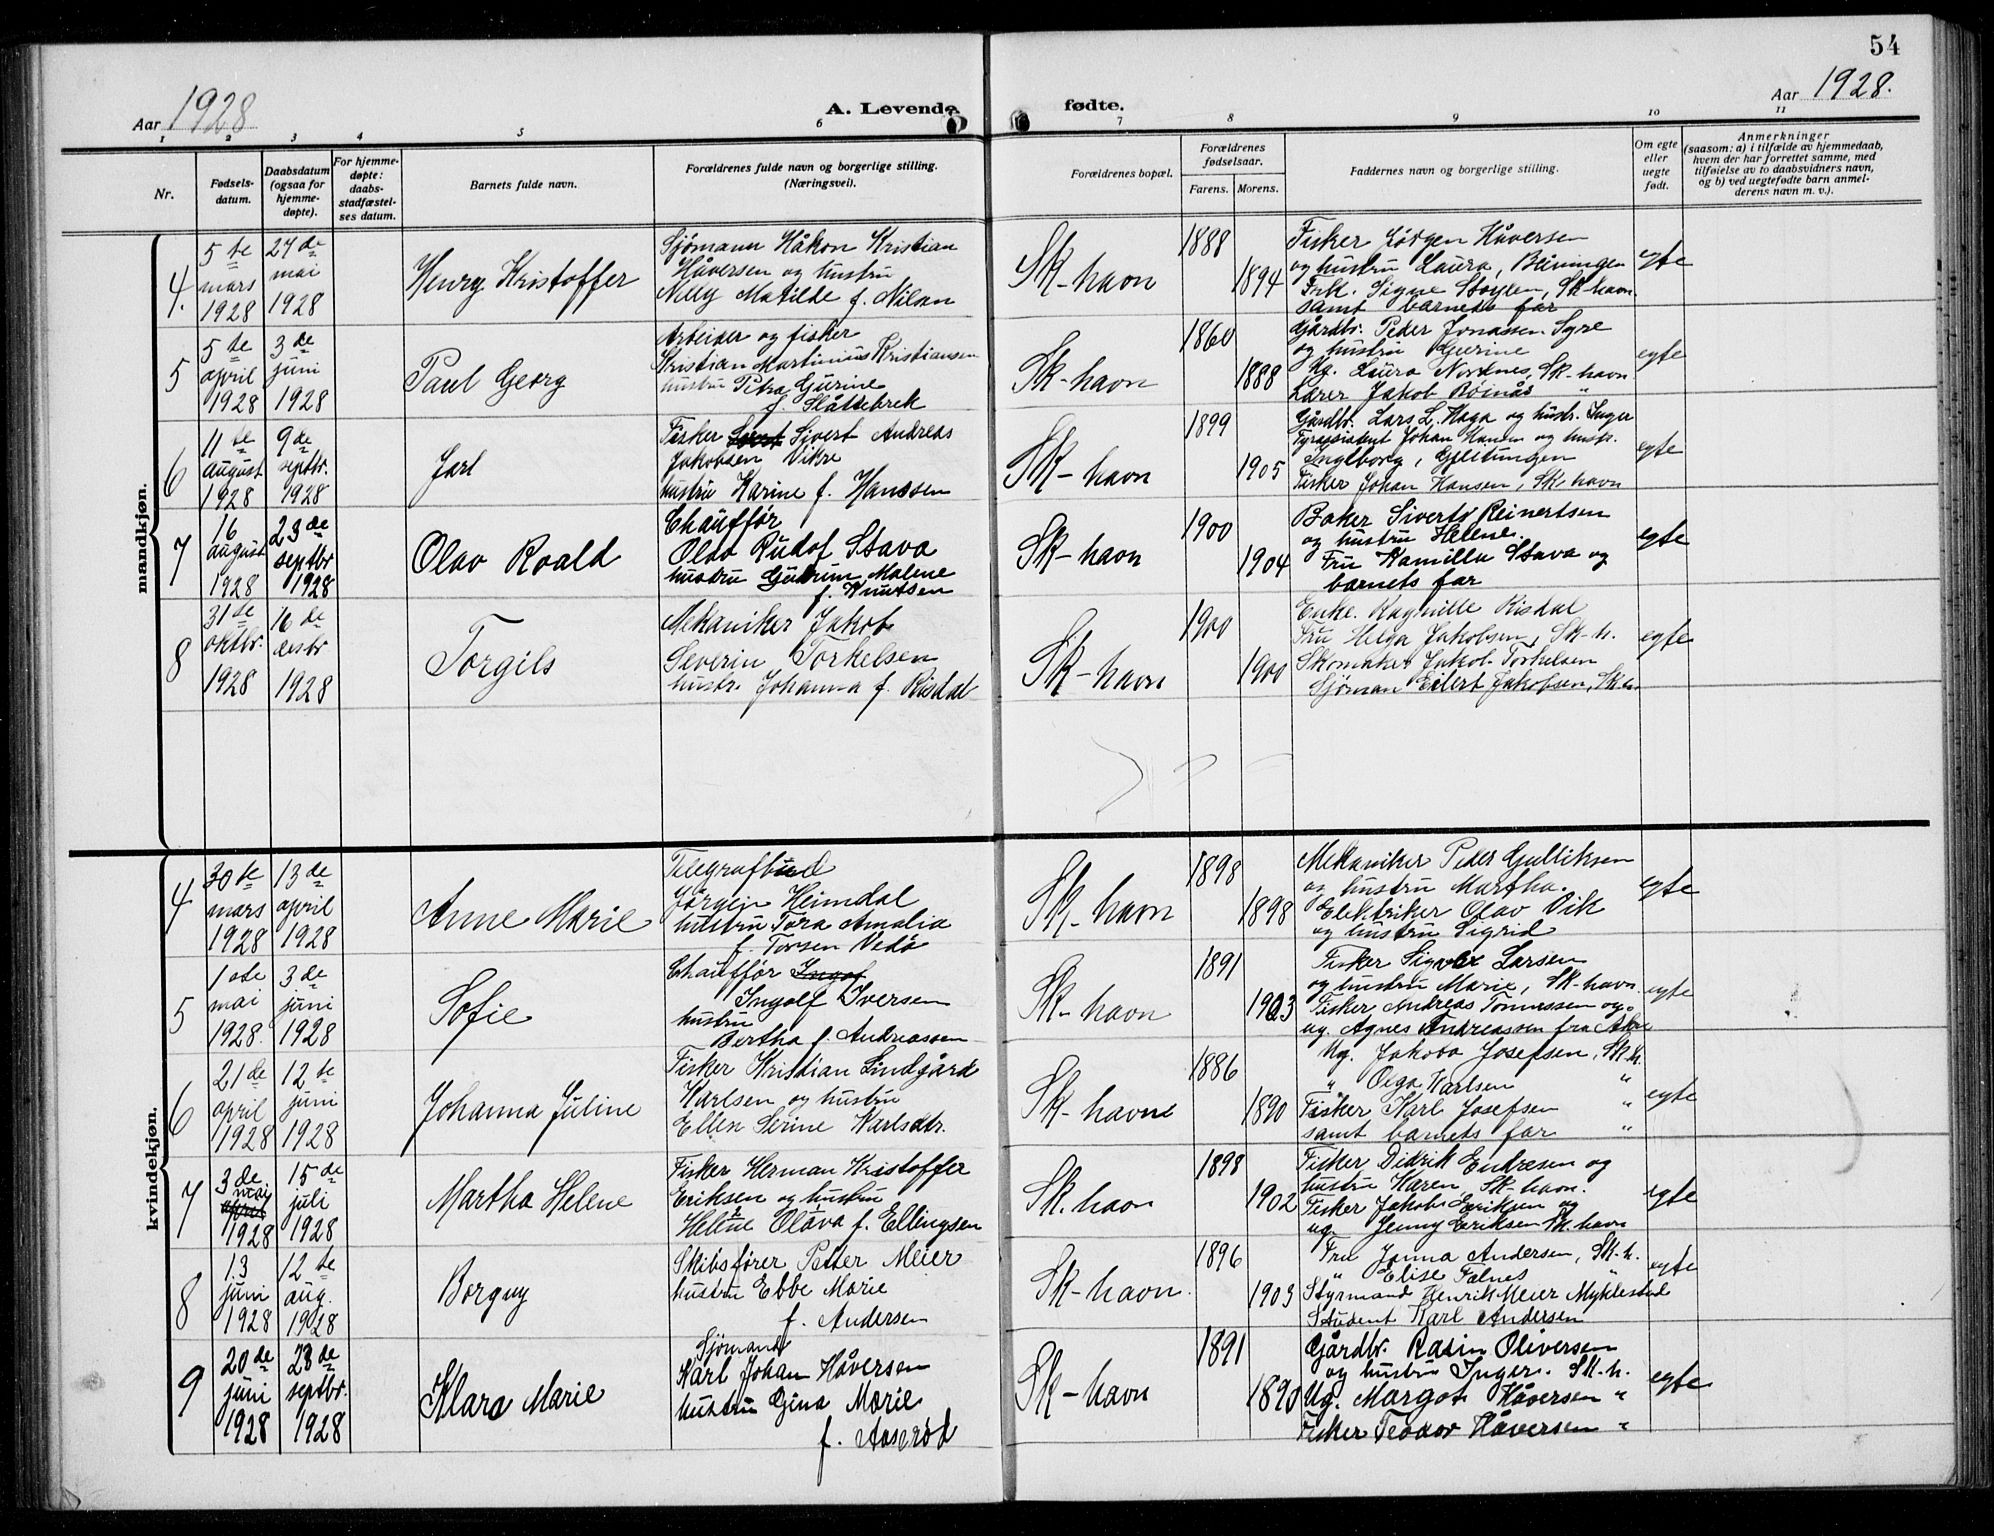 54
Aar 1928
A. Levende
fødte.
Aar 1928.
1 2 3 4 5 6 7 8 9 10 11
Nr.
Fødsels-
datum.
Daabsdatum
(ogsaa for
hjemme-
døpte).
For hjemme-
døpte:
daabs-
stadfæstel-
ses datum.
Barnets fulde navn.
Forældrenes fulde navn og borgerlige stilling.
(Næringsvei).
Forældrenes bopæl.
Forældrenes
fødselsaar.
Farens. Morens.
Faddernes navn og borgerlige stilling.
Om egte
eller
uegte
født.
Anmerkninger
(saasom: a) i tilfælde av hjemmedaab,
hvem der har forrettet samme, med
tilføielse av to daabsvidners navn,
og b) ved uegtefødte barn anmel-
derens navn m. v.).
mandkjøn.
4.
5 te
mars
1928
27 de
mai
1928
Henry Kristoffer
Sjömann Håkon Kristian
Håversen og hustru
Nilly Matilde f. Nilan
Sk-havn
1888
1894
Fisker Jörgen Håversen
og hustru Laura,
Frk. Signe Stoylen, Sk-havn.
samt barnets far
egte
5
5 de
april
1928
3 de
juni
1928
Paul Georg
Arbeider og fisker
Kristian Martinius Kristiansen
hustru Petra Gurine
f. Slåttebrek
Sk-havn
1860
1888
Gårdbr. Peder Jonassen Syre
og hustru Gurine
Ug. Laura Nordnes, Sk-havn
Lærer Jakob "
egte
6
11 te
august
1928
9 de
septbr.
1928
Jarl
Fisker Sivert Andreas
Jakobsen Vikre
hustru Karine f. Hanssen
Sk-havn
1899
1905
Gårdbr. Lars L. Haga og hustr. Inger
Johan Hansen og hustr.
Ingeborg, Geitungen
Fisker Johan Hansen, Sk-havn
egte
7
16
august
1928
23 de
septbr
1928
Olav Roald
Chauffør
Olav Rudof Stava
hustru Gudrun Malene
f. Knutsen
Sk-havn
1900
1904
Baker Sivert Reinertsen
og hustru Helene.
Fru Kamilla Stava og
barnets far
egte
8
31 te
oktbr.
1928
16 de
desbr
1928
Torgils
Mekaniker Jakob
Severin Torkelsen
hustr. Johanna f. Risdal
Sk-havn
1900
1900
Enke. Ragnille Risdal
Fru Helga Jakobsen, Sk-h.
Skomaker Jakob Torkelsen
Sjöman Eilert Jakobsen, Sk-h
egte
kvindekjøn.
4
30 te
mars
1928
13 de
april
1928
Anne Marie
Telegrafbud
Jörgen Heimdal
hustru Tora Amalia
f. Torsen Vedö
Sk-havn
1898
1898
Mekaniker Peder Gulliksen
og hustru Martha.
Elektriker Olav Vik
og hustru Sigrid
egte
5
1 ste
mai
1928.
3 de
juni
1928
Sofie
Chauffør Ingof
Ingolf Iversen
hustru
Bertha f. Andreassen
Sk-havn
1891
1903
Fisker Sigvar Larsen
og hustru Marie, Sk-havn.
Fisker Andreas Tomassen og
ug. Agnes Andreassen fra
egte
6
21 de
april
1928
12 te
juni
1928
Johanna Juline
Fisker Kristian Lindgård
Karlsen og hustru
Ellen Serine Karlsdtr.
Sk-havn
1886
1890
Ug. Jakoba Josefsen, Sk-h.
" Olga Karlsen "
Fisker Karl Josefsen "
samt barnets far "
egte
7
3 de
mai
april
1928
15 de
juli
1928
Martha Helene
Fisker Herman Kristoffer
Eriksen og hustru
Helene Olava f. Ellingsen
Sk. havn
1898
1902
Fisker Didrik Endresen og
hustru Karen Sk-havn.
Fisker Jakob Eriksen og
ug. Jenny Eriksen Sk.havn
egte
8
13
juni
1928
12 te
aug.
1928
Borgny
Skibsfører Petter Meier
hustru Ebbe Marie
f. Andersen
Sk-havn.
1896
1903
Fru Janna Andersen, Sk-h.
" Elise Falnes
Styrmand Henrik Meier Myklestad
Student Karl Andersen
egte
9
20 de
juni
1928
23 de
septbr.
1928
Klara Marie
Sjömand
Karl Johan Håversen
hustru Gina Marie
f. Aaseröd
Sk-havn
1891
1890
Gårdbr. Rasin Oliversen
og hustru Inger. Sk-h.
Ug. Margot Håversen "
Fisker Teodor Håversen "
egte